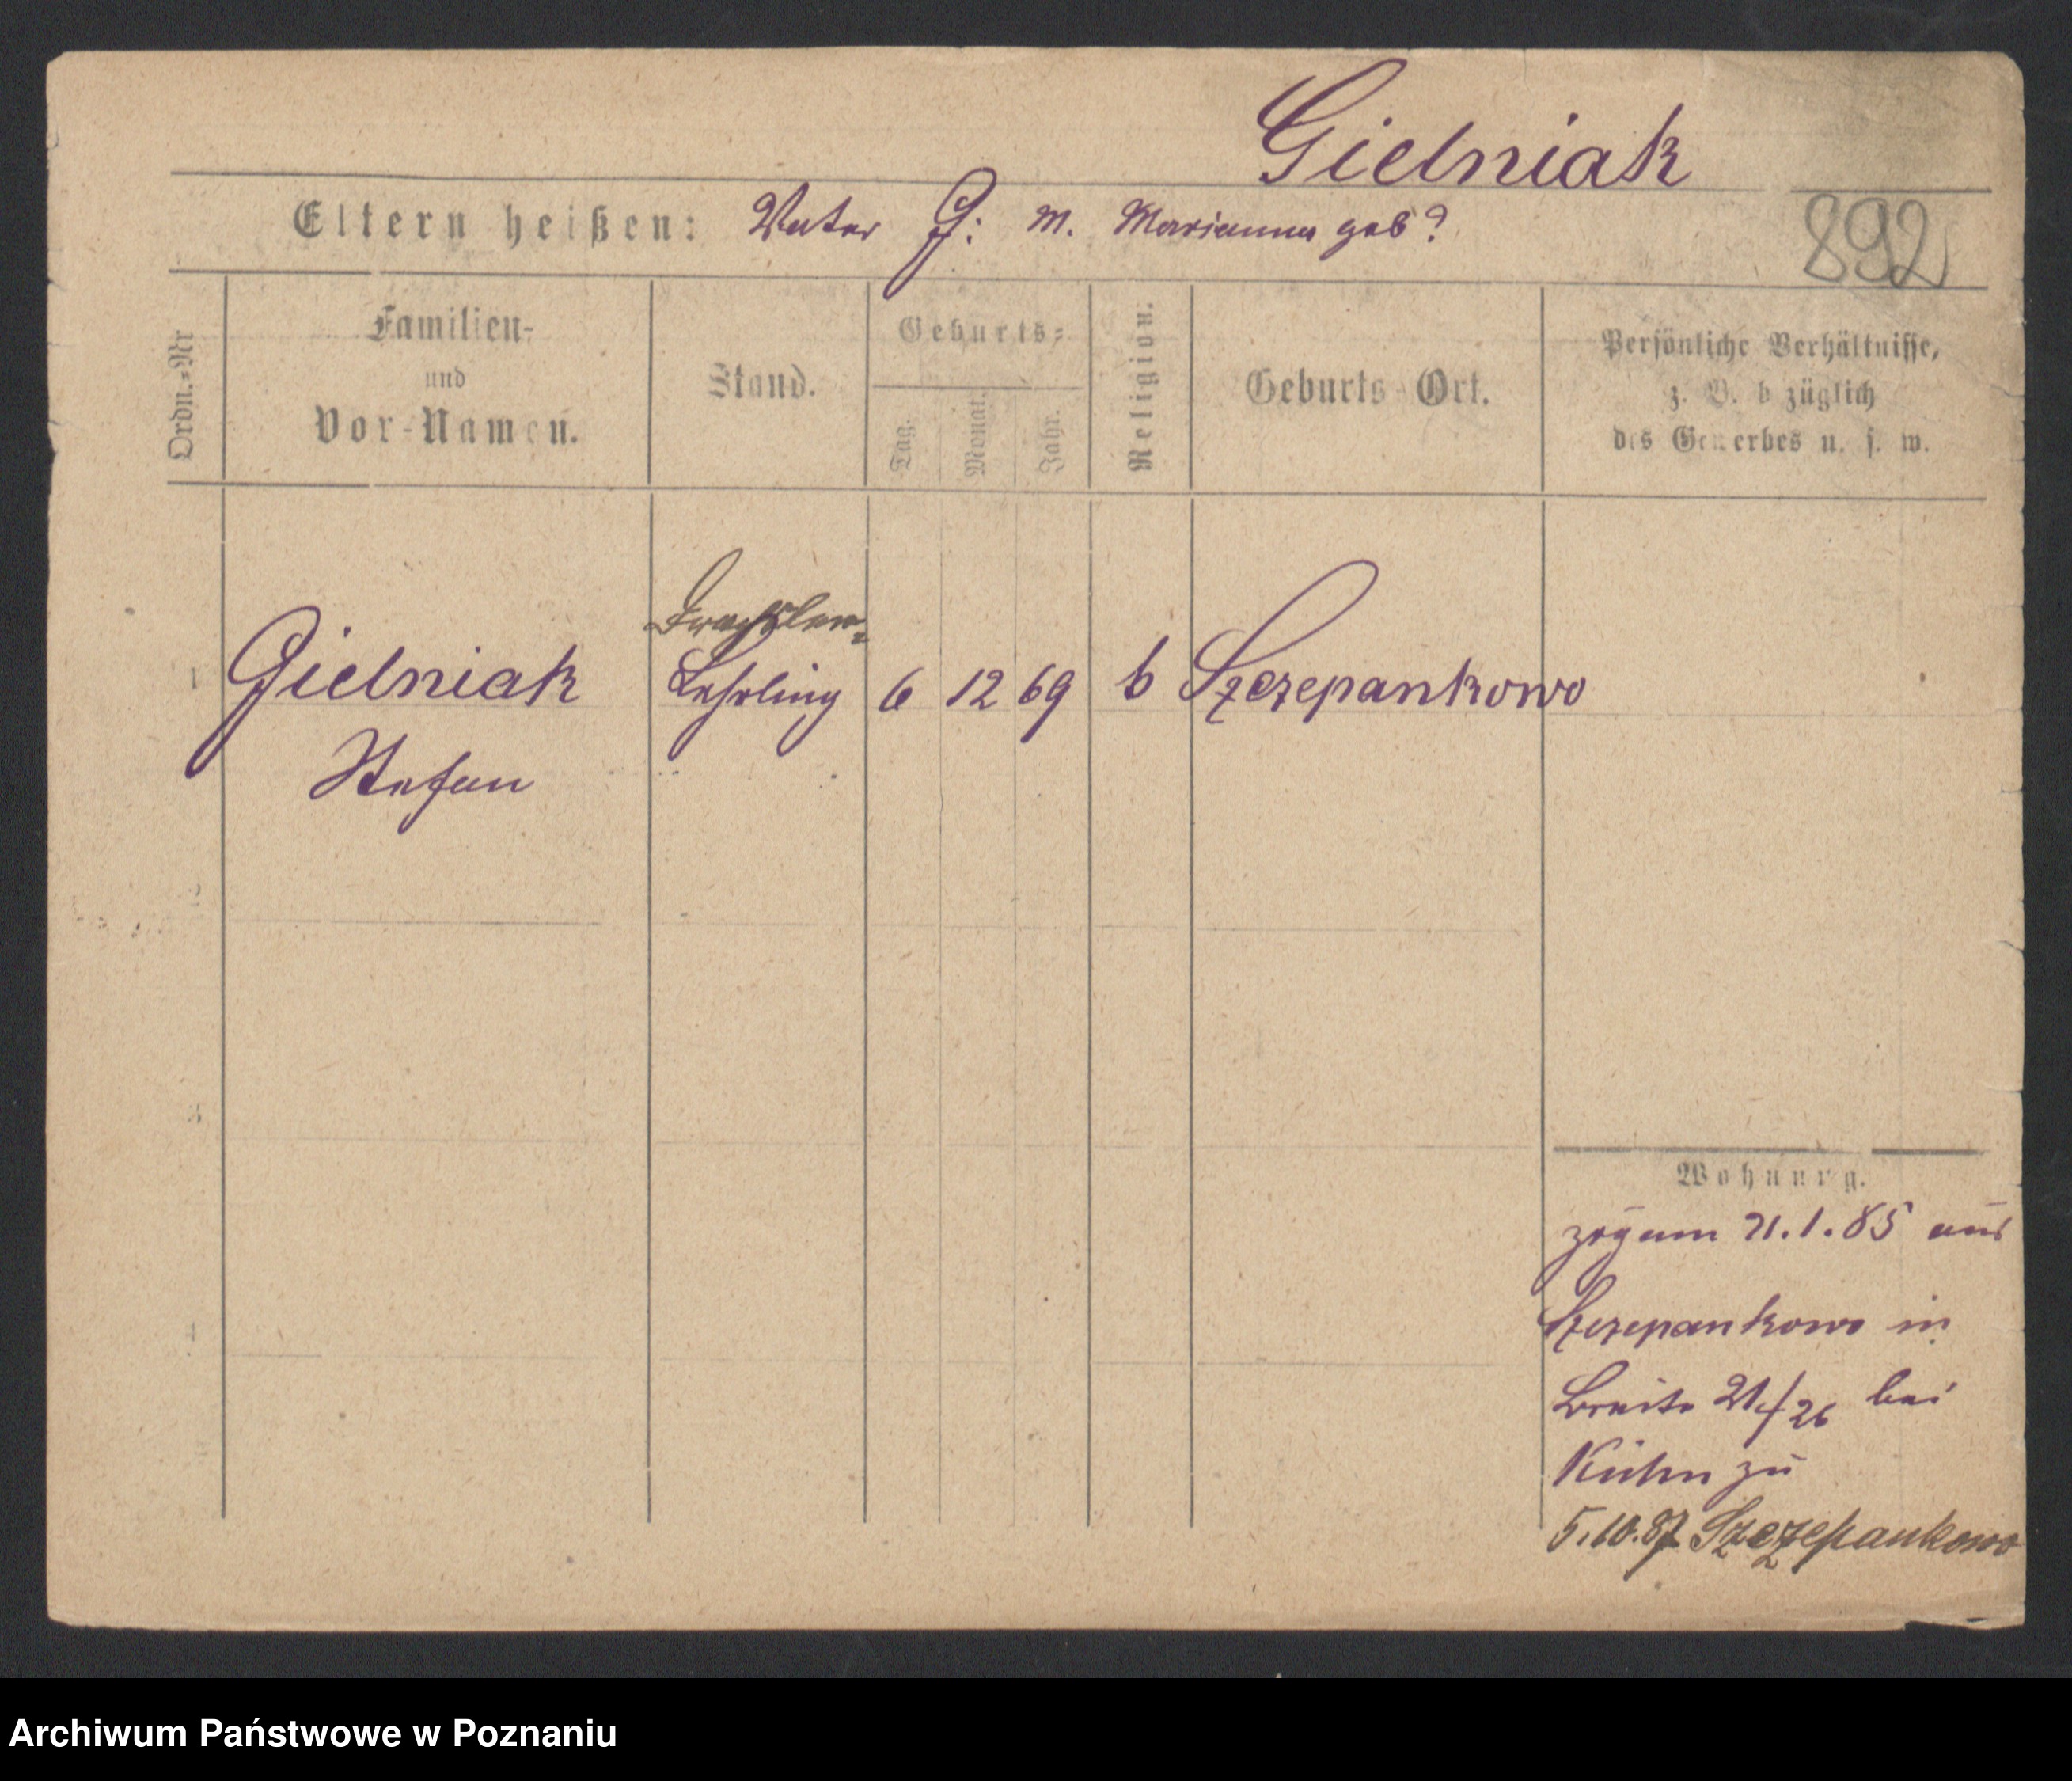 Gielniak
Eltern heißen: Vater G: M. Marianna geb?
892
Ordn.-Nr
Familien-
und
Vor-Namen.
Stand.
Geburts-
Tag.
Monat.
Jahr.
Religion.
Geburts Ort.
Persönliche Verhältnisse,
z. B. bezüglich
des Gewerbes u. s. w.
Drechsler-
1 Gielniak Lehrling 6 12 69 k Szczepankowo
Stefan
3
4
Wohnung.
zog am 21.1.85 aus
Szczepankowo in
Breite 21/26 bei
Kühn zu
5.10.87 Szczepankowo
Archiwum Państwowe w Poznaniu